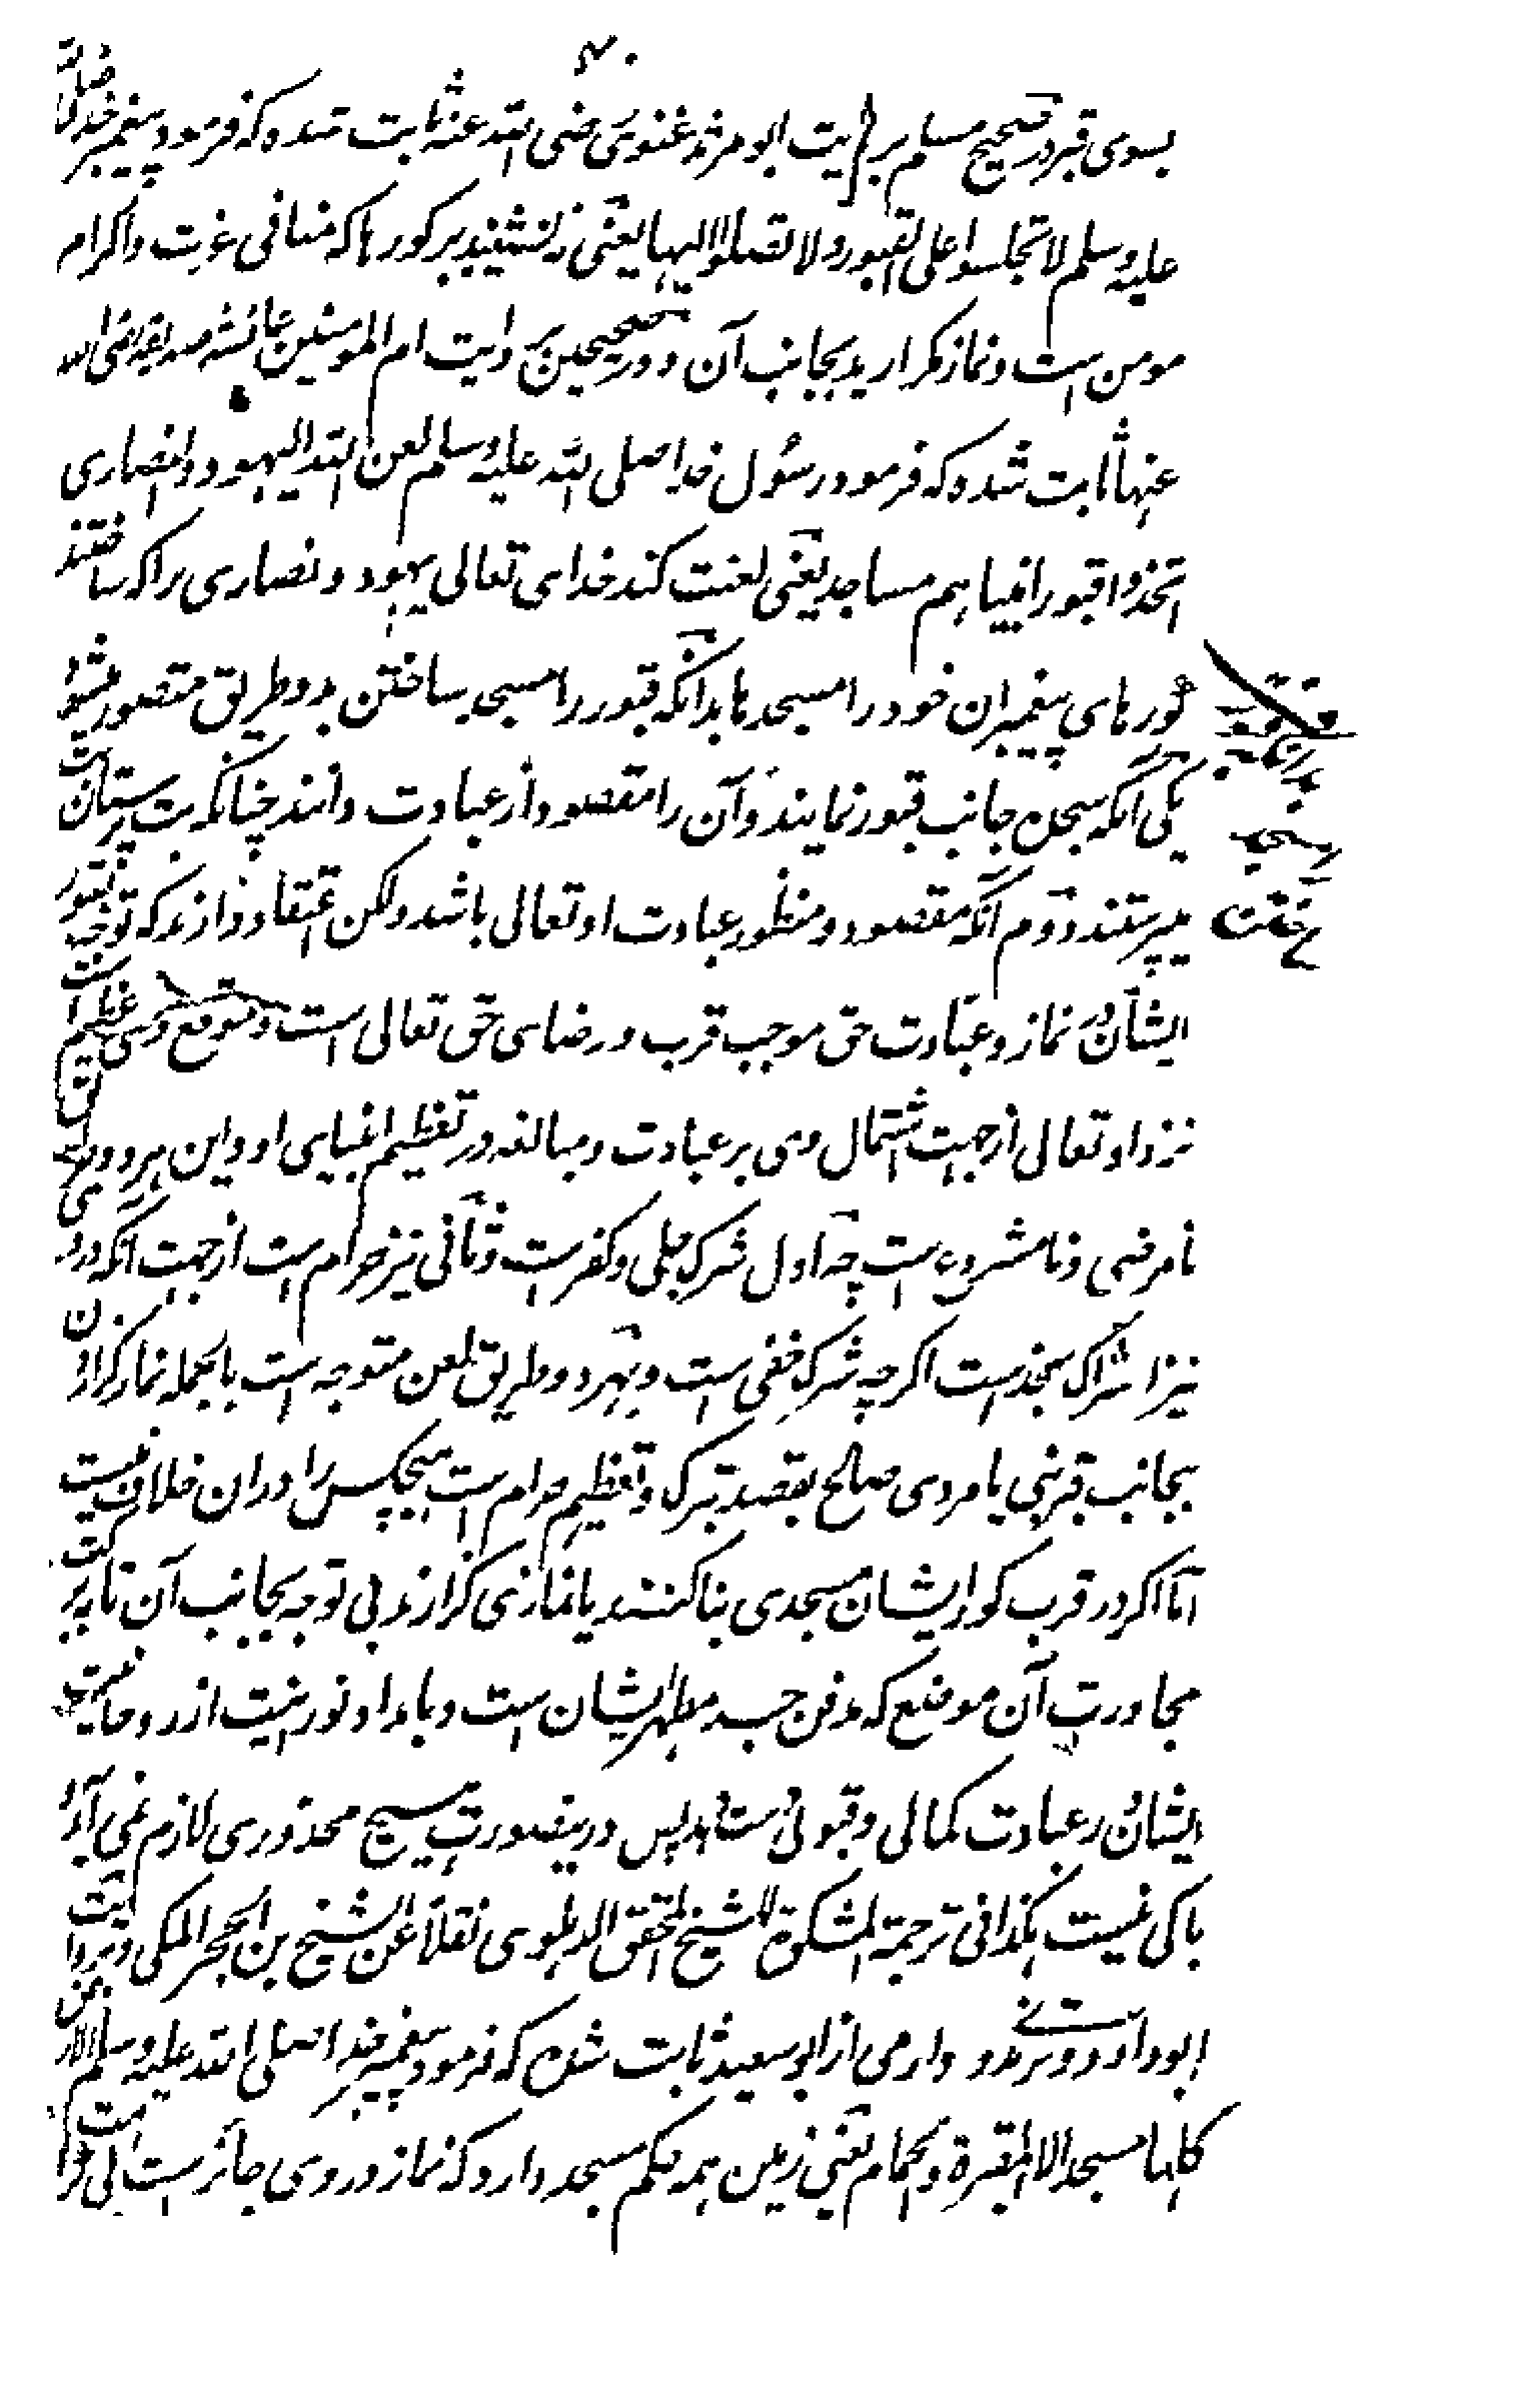 ۳۰
بسوی قبر در صحیح مسلم بروایت ابو مرثد غنوی رضی الله عنه ثابت شده که فرمود پیغمبر خدا صلی الله
علیه وسلم لا تجلسوا علی القبور ولا تصلوا الیها یعنی نه نشینید بر گورها که منافی عزت و اکرام
مومن است و نماز مگزارید بجانب آن و در صحیحین بروایت ام المومنین عائشه صدیقه رضی الله
عنها ثابت شده که فرمود رسول خدا صلی الله علیه وسلم لعن الله الیهود والنصاری
اتخذوا قبور انبیاهم مساجد یعنی لعنت کند خدای تعالی یهود و نصاری را که ساختند
گورهای پیغمبران خود را مسجدها بدانکه قبور را مسجد ساختن بدو طریق متصور میشود
یکی آنکه سجده جانب قبور نمایند و آن را مقصود از عبادت دانند چنانکه بت پرستان بت
میپرستند دوم آنکه مقصود و منظور عبادت او تعالی باشد ولکن اعتقاد دارند که توجه بقبور
ایشان در نماز و عبادت حق موجب قرب و رضای حق تعالی است و موقع وی عظیم است
نزد او تعالی از جهت اشتمال وی بر عبادت و مبالغه در تعظیم انبیای او و این هر دو طریق
نامرضی و نامشروع است چه اول شرک جلی و کفر است و ثانی نیز حرام است از جهت آنکه درو
نیز اشراک بخداست اگرچه شرک خفی است و بهر دو طریق لعن متوجه است بالجمله نماز گزاردن
بجانب قبر نبی یا مردی صالح بقصد تبرک و تعظیم حرام است هیچکس را دران خلاف نیست
اما اگر در قرب گور ایشان مسجدی بنا کنند یا نمازی گزارند بی توجه بجانب آن تا ببرکت
مجاورت آن موضع که مدفن جسد مطهر ایشان است و بامداد نورانیت از روحانیت
ایشان در عبادت کمالی و قبولی دست دهد پس درینصورت هیچ محذوری لازم نمی آید
باکی نیست هکذا فی ترجمة المشکوة للشیخ المحقق الدهلوی نقلاً عن الشیخ بن الحجر المکی و بروایت
ابو داود و ترمذی و دارمی از ابو سعید ثابت شده که فرمود پیغمبر خدا صلی الله علیه وسلم الارض
کلها مسجد الا المقبرة والحمام یعنی زمین همه حکم مسجد دارد که نماز در وی جائز است بی
بدانکه
مسجد
ساختن